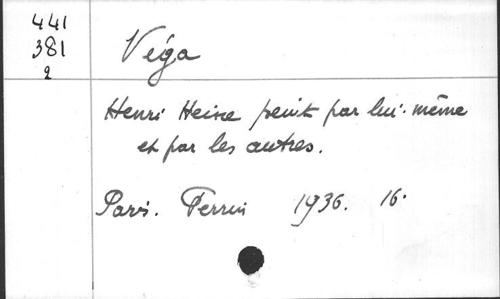 441
381
2
Véga
Henri Heine peint par lui-même
et par les autres.
Paris. Perrin 1936. 16°